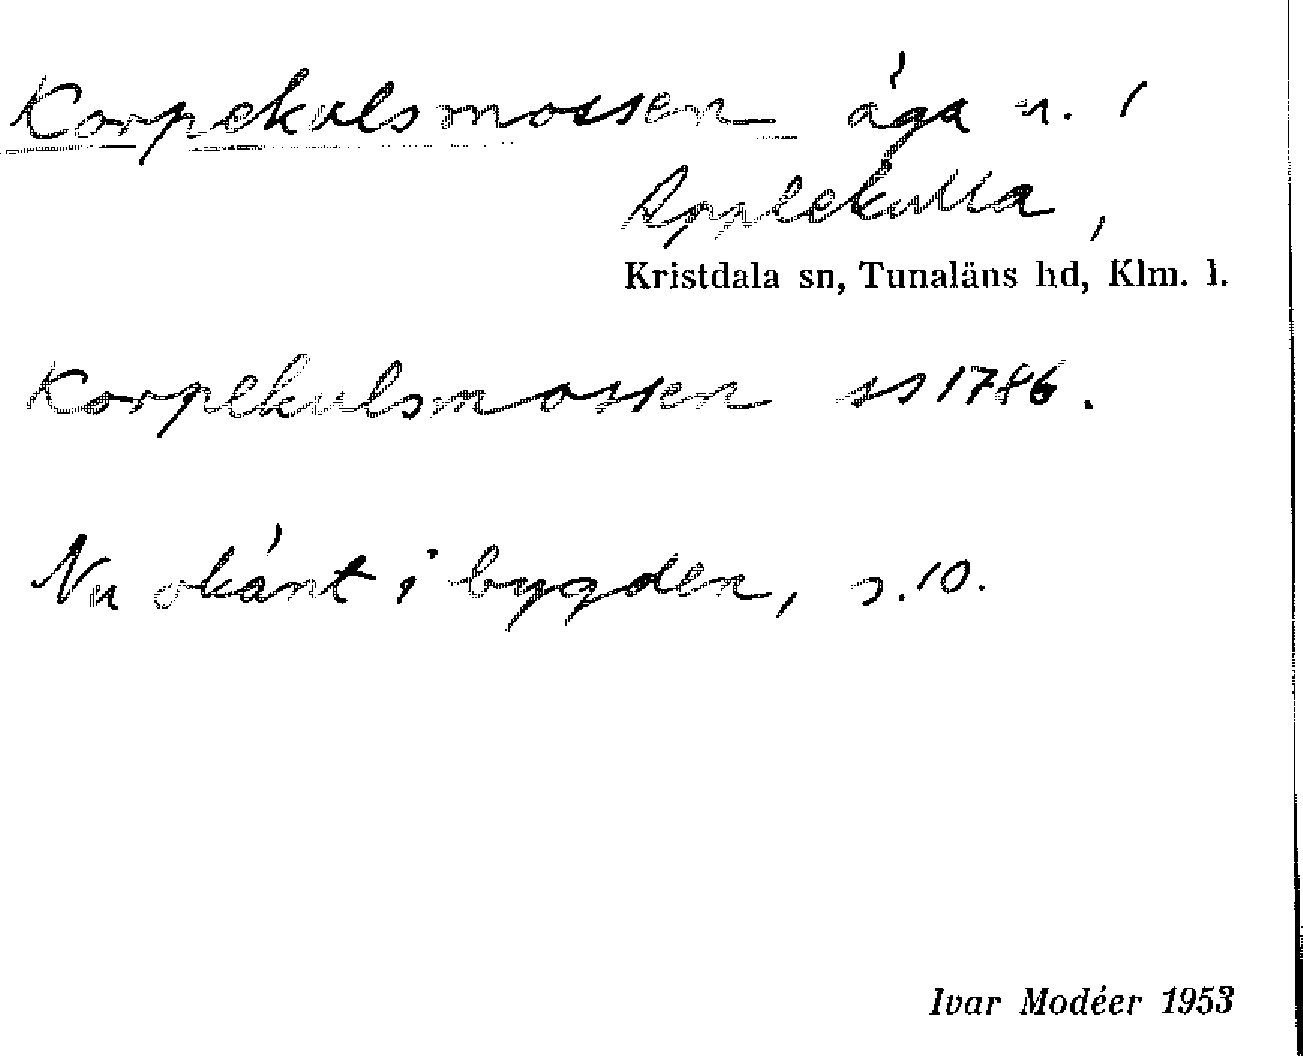 Korpekulsmossen äga n. i
Applekulla,
Kristdala sn, Tunaläns hd, Klm. l.
Korpekulsmossen ss 1786.
Nu okänt i bygden, s. 10.
Ivar Modéer 1953